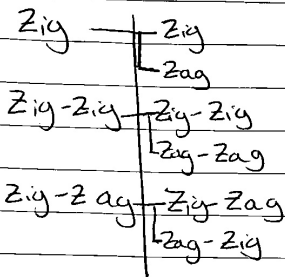 Zig Zig
Zag
Zig-Zig Zig-Zig
Zag-Zag
Zig-Zag Zig-Zag
Zag-Zig